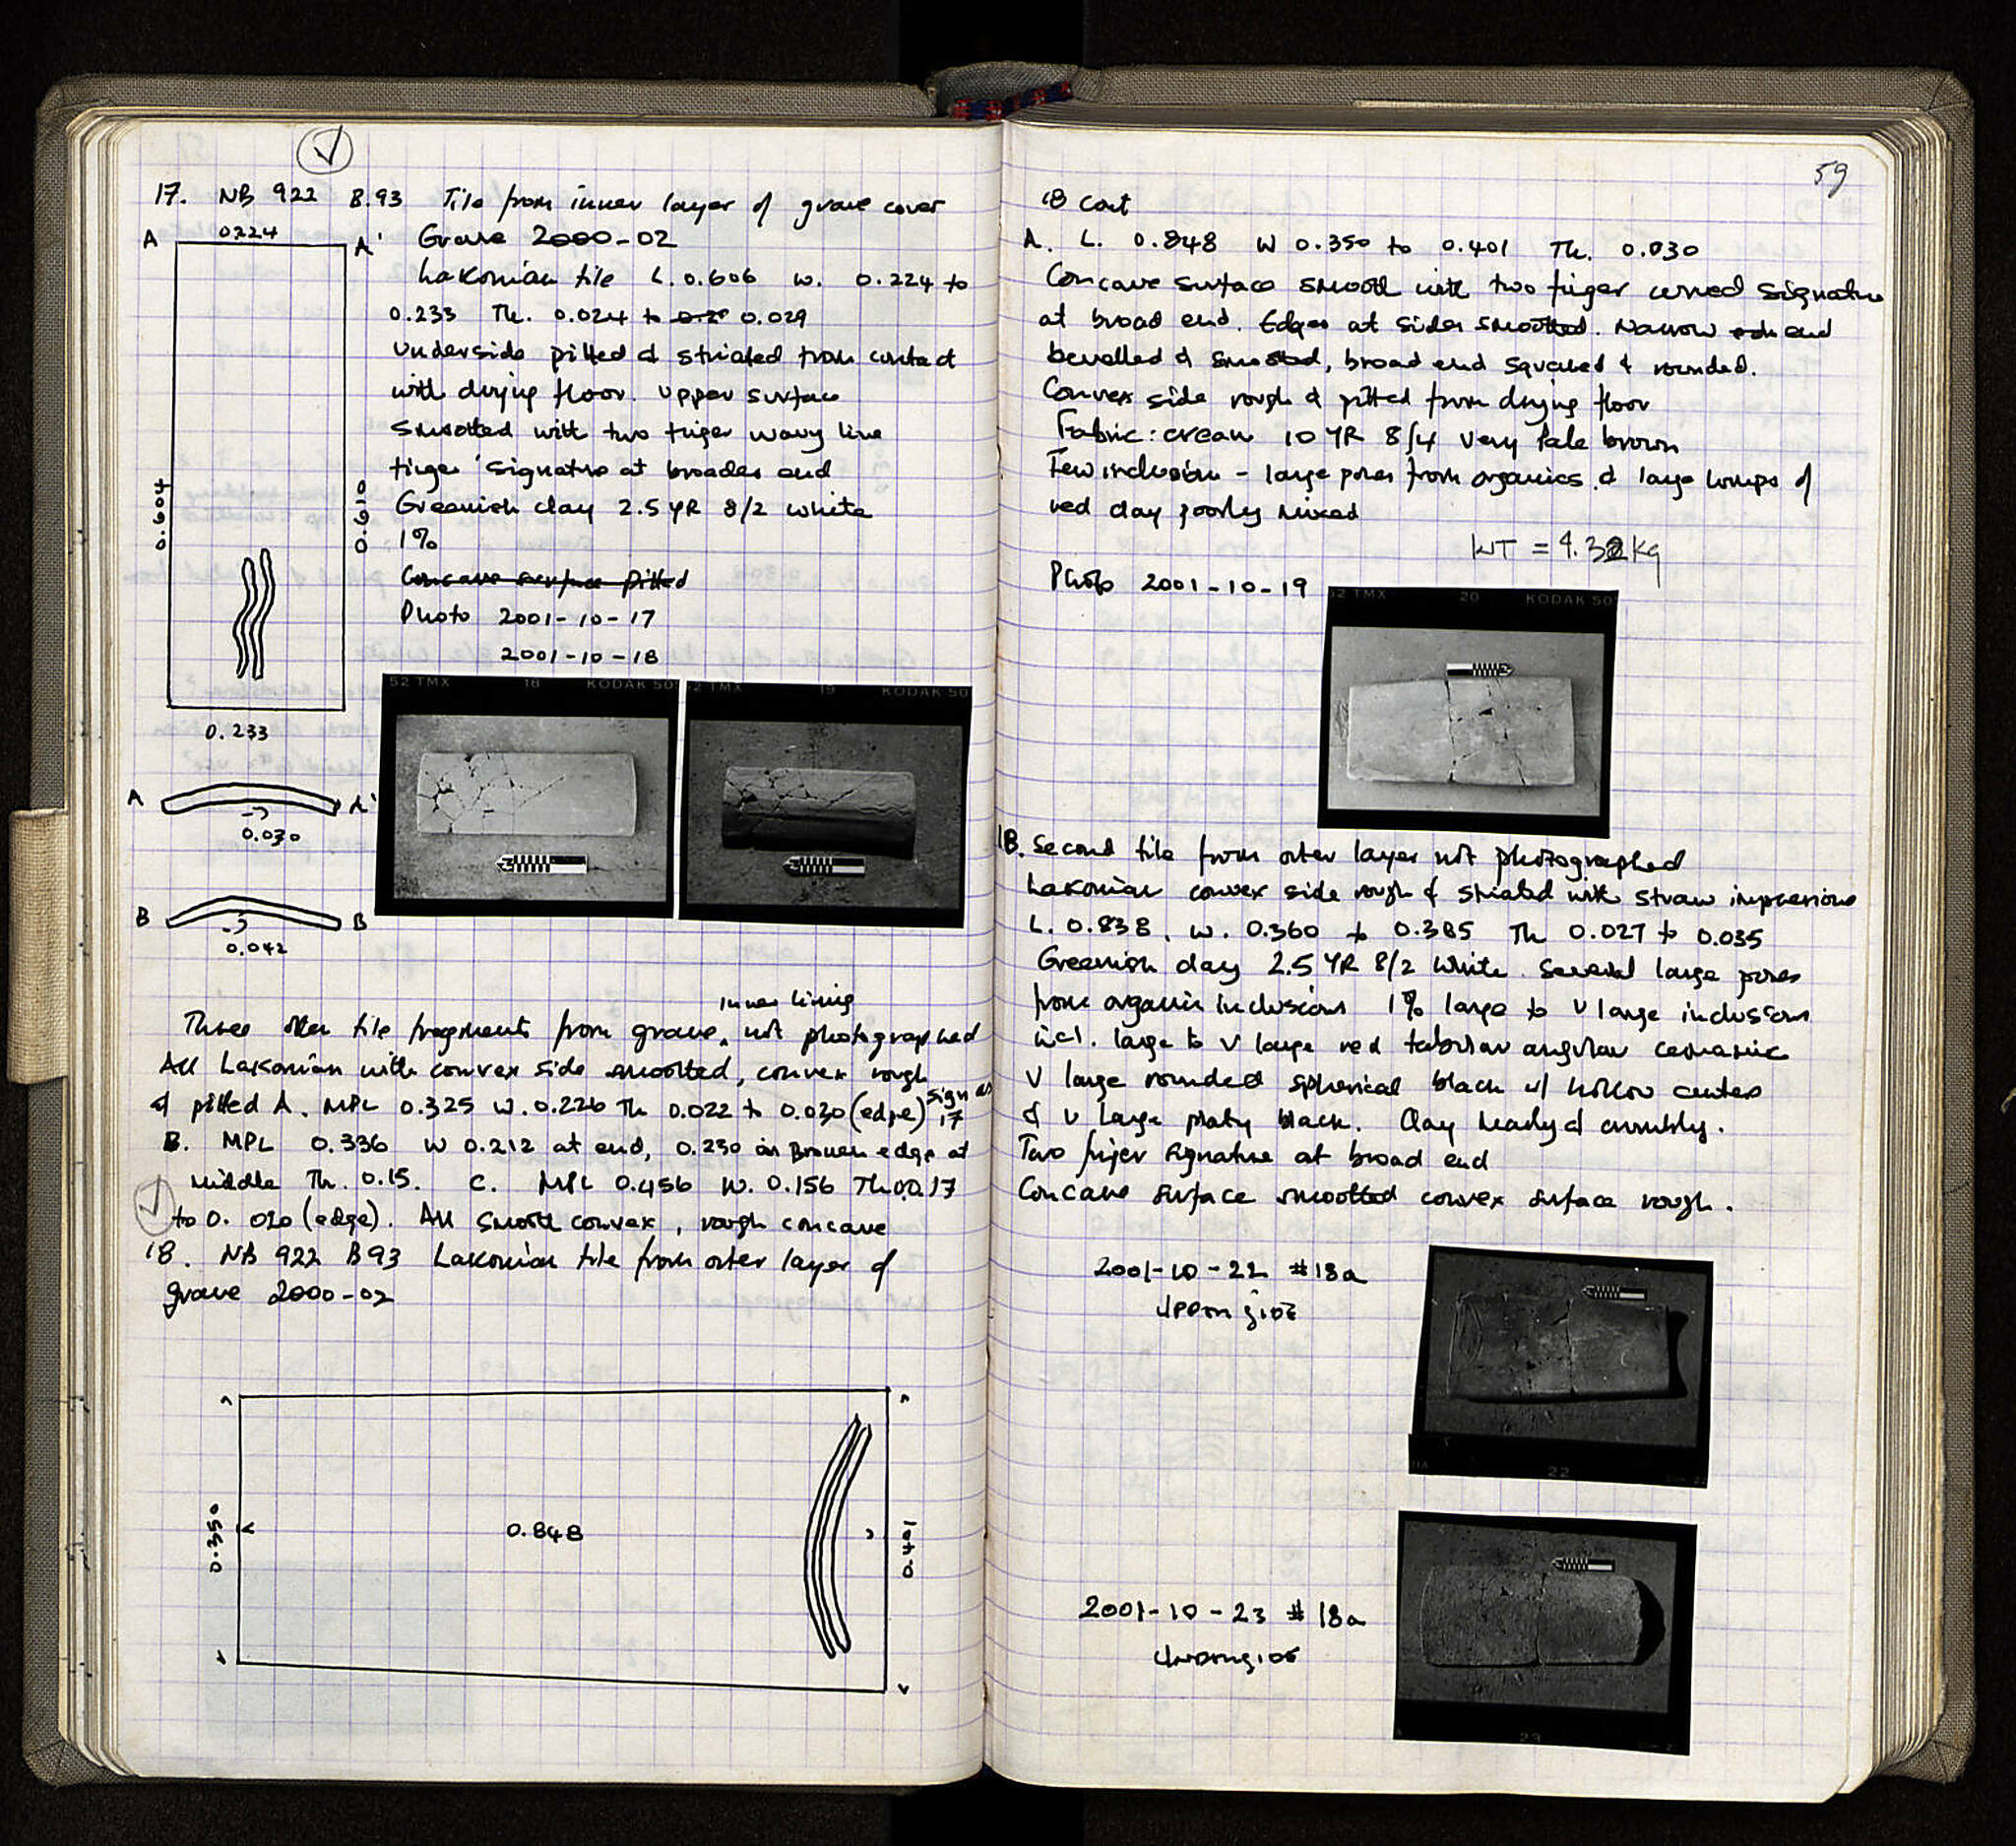 17. NB 922 B.93 Tile from inner layer of grave cover
Grave 2000-02
Lakonian tile L. 0.606 w. 0.224 to
0.233 Th. 0.024 to 0.029
Underside pitted & striated from contact
with drying floor. Upper surface
smoothed with two finger wavy line
finger 'signature at broader end
Greenish clay 2.5 YR 8/2 white
1%
Concave surface pitted
Photo 2001-10-17
2001-10-18
A 0.224 A'
0.604
0.610
0.233
52 TMX 18 KODAK 50
TMX 19 KODAK 50
A A'
0.030
B B
0.042
inner lining
Three other tile fragments from grave, not photographed
All Lakonian with convex side smoothed, convex rough
& pitted A. MPL 0.325 W. 0.226 Th 0.022 to 0.030 (edge) sign as 17
B. MPL 0.336 W 0.212 at end, 0.230 in Broken edge at
middle Th. 0.15. C. MPL 0.456 W. 0.156 Th 0.017
to 0.020 (edge). All smooth convex, rough concave
18. NB 922 B93 Lakonian tile from outer layer of
grave 2000-02
0.350
0.848
0.401
59
18 cont
A. L. 0.848 W 0.350 to 0.401 Th. 0.030
Concave surface smooth with two finger curved signature
at broad end. Edges at sides smoothed. Narrow end
bevelled & smoothed, broad end squared & rounded.
Convex side rough & pitted from drying floor
Fabric: cream 10 YR 8/4 very pale brown
Few inclusion - large pores from organics & large lumps of
red clay poorly mixed
WT = 4.32 kg
Photo 2001-10-19
52 TMX 20 KODAK 50
1B. Second tile from outer layer not photographed
Lakonian convex side rough & striated with straw impressions
L. 0.838, W. 0.360 to 0.385 Th 0.027 to 0.035
Greenish clay 2.5 YR 8/2 white. Several large pores
from organic inclusions 1% large to v large inclusions
incl. large to v large red tabular angular ceramic
V large rounded spherical black w/ hollow centers
& v large platy black. Clay heavy & crumbly.
Two finger signature at broad end
Concave surface smoothed convex surface rough.
2001-10-22 #18a
Upperside
22
2001-10-23 #18a
Underside
23